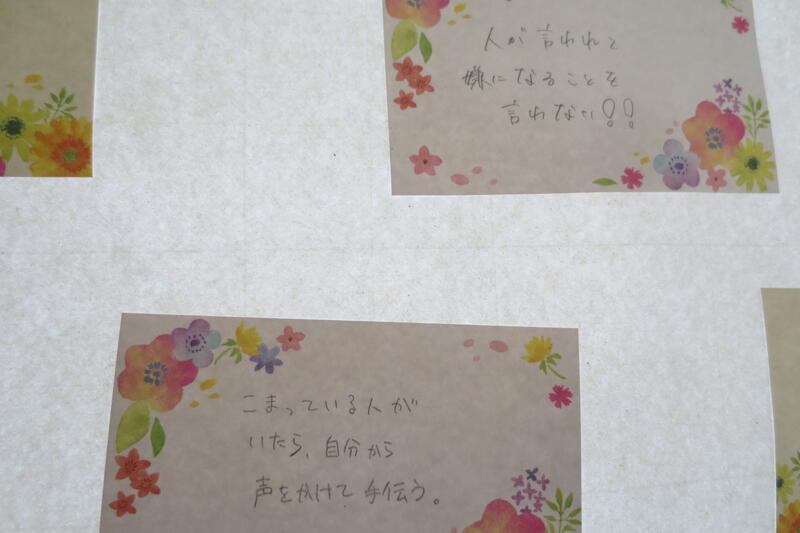 人が言われて
嫌になることを
言わない!!
こまっている人が
いたら、自分から
声をかけて手伝う。